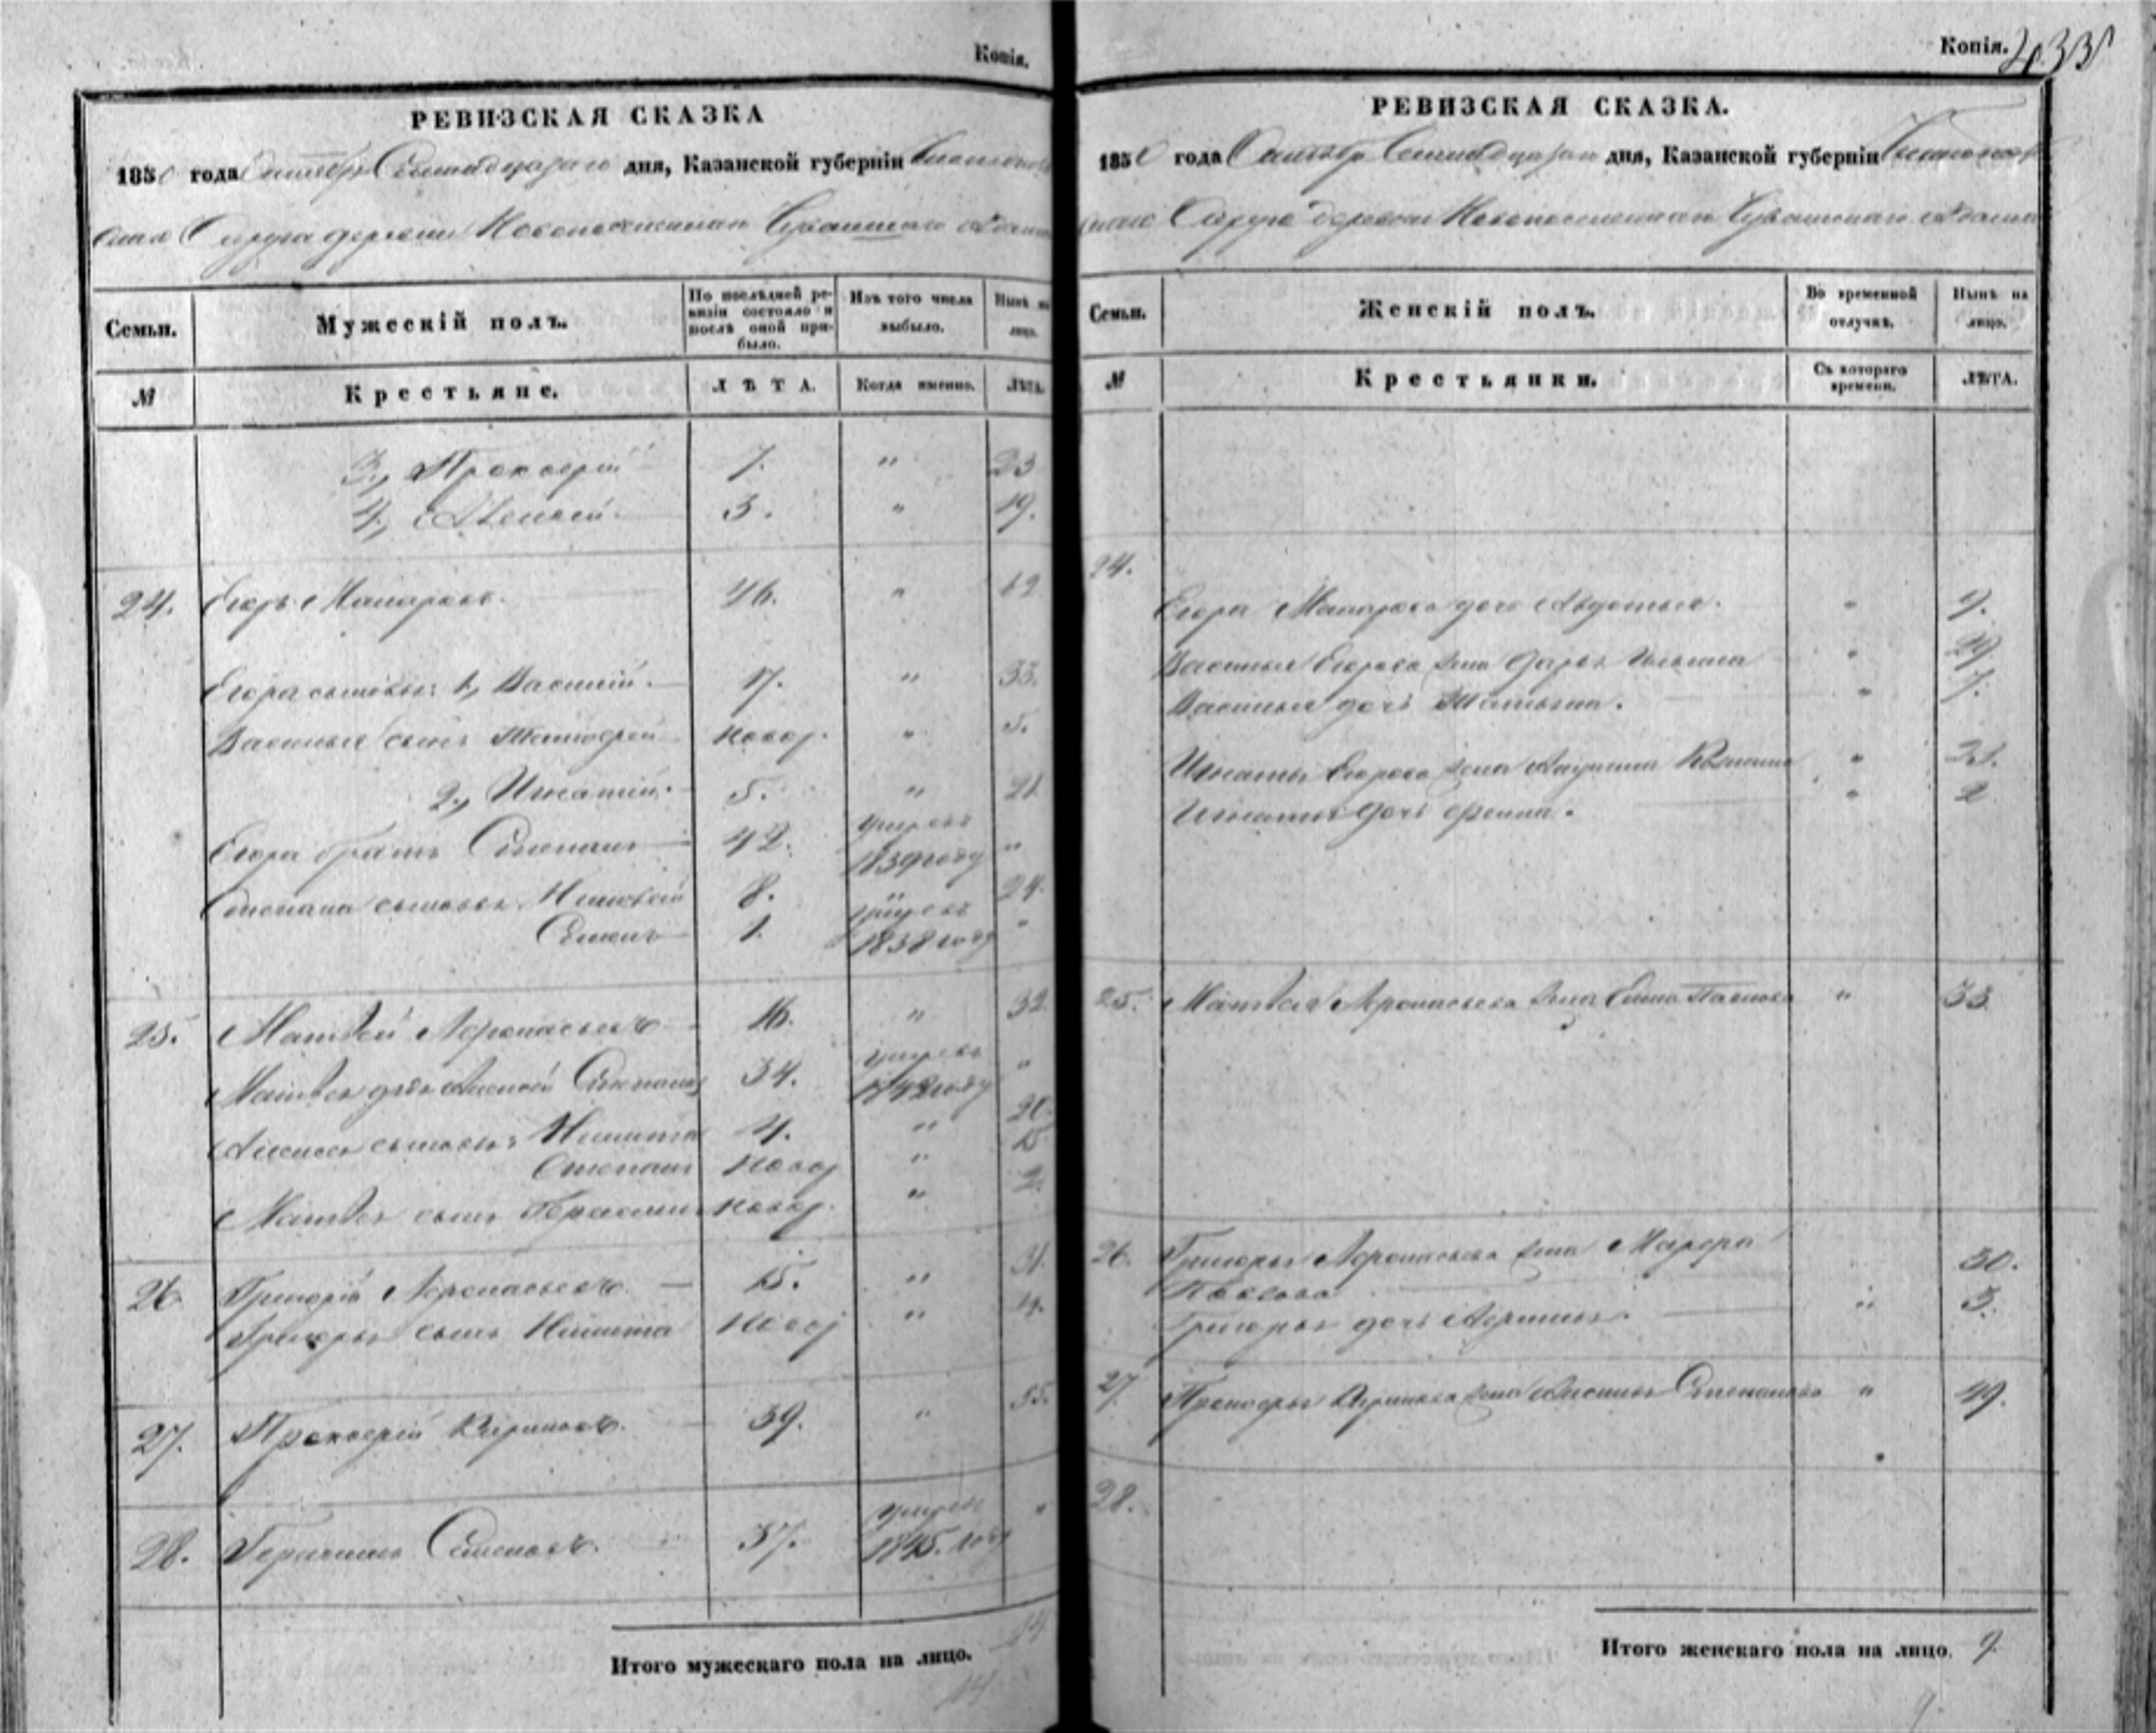 Копія.
РЕВИЗСКАЯ СКАЗКА
1850 года Октября Семнадцатаго дня, Казанской губерніи
Округа деревни Новопоселенной Чувашской
Семьи.
Мужескій полъ.
По послѣдней ревизіи состояло и послѣ оной прибыло.
Изъ того числа выбыло.
Нынѣ на лицо.
№
Крестьяне.
ЛѢТА.
Когда именно.
ЛѢТА.
3., Прокофій 7. " 23
4., Алексѣй 3. " 19.
24. Егоръ Макаровъ. 46. " 62
Егора сыновья: 1, Василій. 17. " 33.
Василья сынъ Тимофей новор. " 5.
2., Игнатій. 5. " 21.
Егора братъ Степанъ 42. умеръ 1839 году "
Степана сыновья 8. 24.
Семенъ 1. умеръ 1838 году "
25. Матвѣй Афонасьевъ 16. " 32
Матвѣя дядя Алексѣй Степановъ 34. умеръ 1842 году "
Алексѣя сыновья: Никита 4. " 20.
Степанъ новор " 15
Матвѣя сынъ Герасимъ новор. " 2.
26. Григорій Афонасьевъ. 15. " 31.
Григорья сынъ Никита новор " 4.
27. Прокофій Кириловъ. 39. " 55.
28. Герасимъ Семеновъ. 37. умеръ 1845. году "
Итого мужескаго пола на лицо. 14
14
Копія. 435
РЕВИЗСКАЯ СКАЗКА.
1850 года Октября Семнадцатаго дня, Казанской губерніи
Округа деревни Новопоселенной Чувашской
Семьи.
Женскій полъ.
Во временной отлучкѣ.
Нынѣ на лицо.
№
Крестьянки.
Съ котораго времени.
ЛѢТА.
24.
Егора Макарова дочь Авдотья. " 9.
Василья Егорова жена Дарья Ильина " 29
Василья дочь Татьяна. " 7.
Игнатья Егорова жена Акулина " 21.
Игнатья дочь " 2
25. Матвѣя Афонасьева жена Павлова " 33.
26. Григорья Афонасьева жена Марфа
Павлова 30.
Григорья дочь " 3.
27. Прокофья Кирилова жена Степанова " 49.
28.
Итого женскаго пола на лицо. 9.
9.